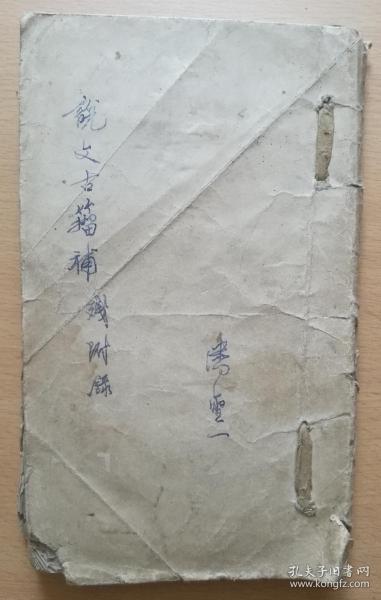 說文古籀補殘附錄
潘聖一
孔夫子旧书网
www.kongfz.com